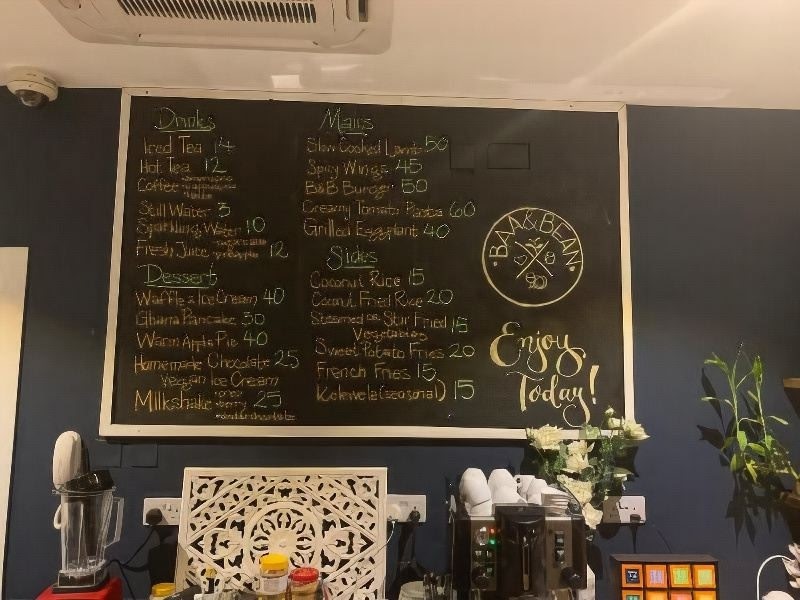 Drinks
Iced Tea 14
Hot Tea 12
Coffee
Still Water 3
Sparkling Water 10
Fresh Juice 12
Dessert
Waffle & Ice Cream 40
Ghana Pancake 30
Warm Apple Pie 40
Homemade Chocolate 25
Veggan Ice Cream
Milkshake 25
Mains
Slow Cooked Lamb 50
Spicy Wings 45
B&B Burger 50
Creamy Tomato Pasta 60
Grilled Eggplant 40
Sides
Coconut Rice 15
Coconut Fried Rice 20
Steamed or Stir Fried 15
Vegetables
Sweet Potato Fries 20
French Fries 15
Kelewele (seasonal) 15
BAA&BEAN
Enjoy
Today!